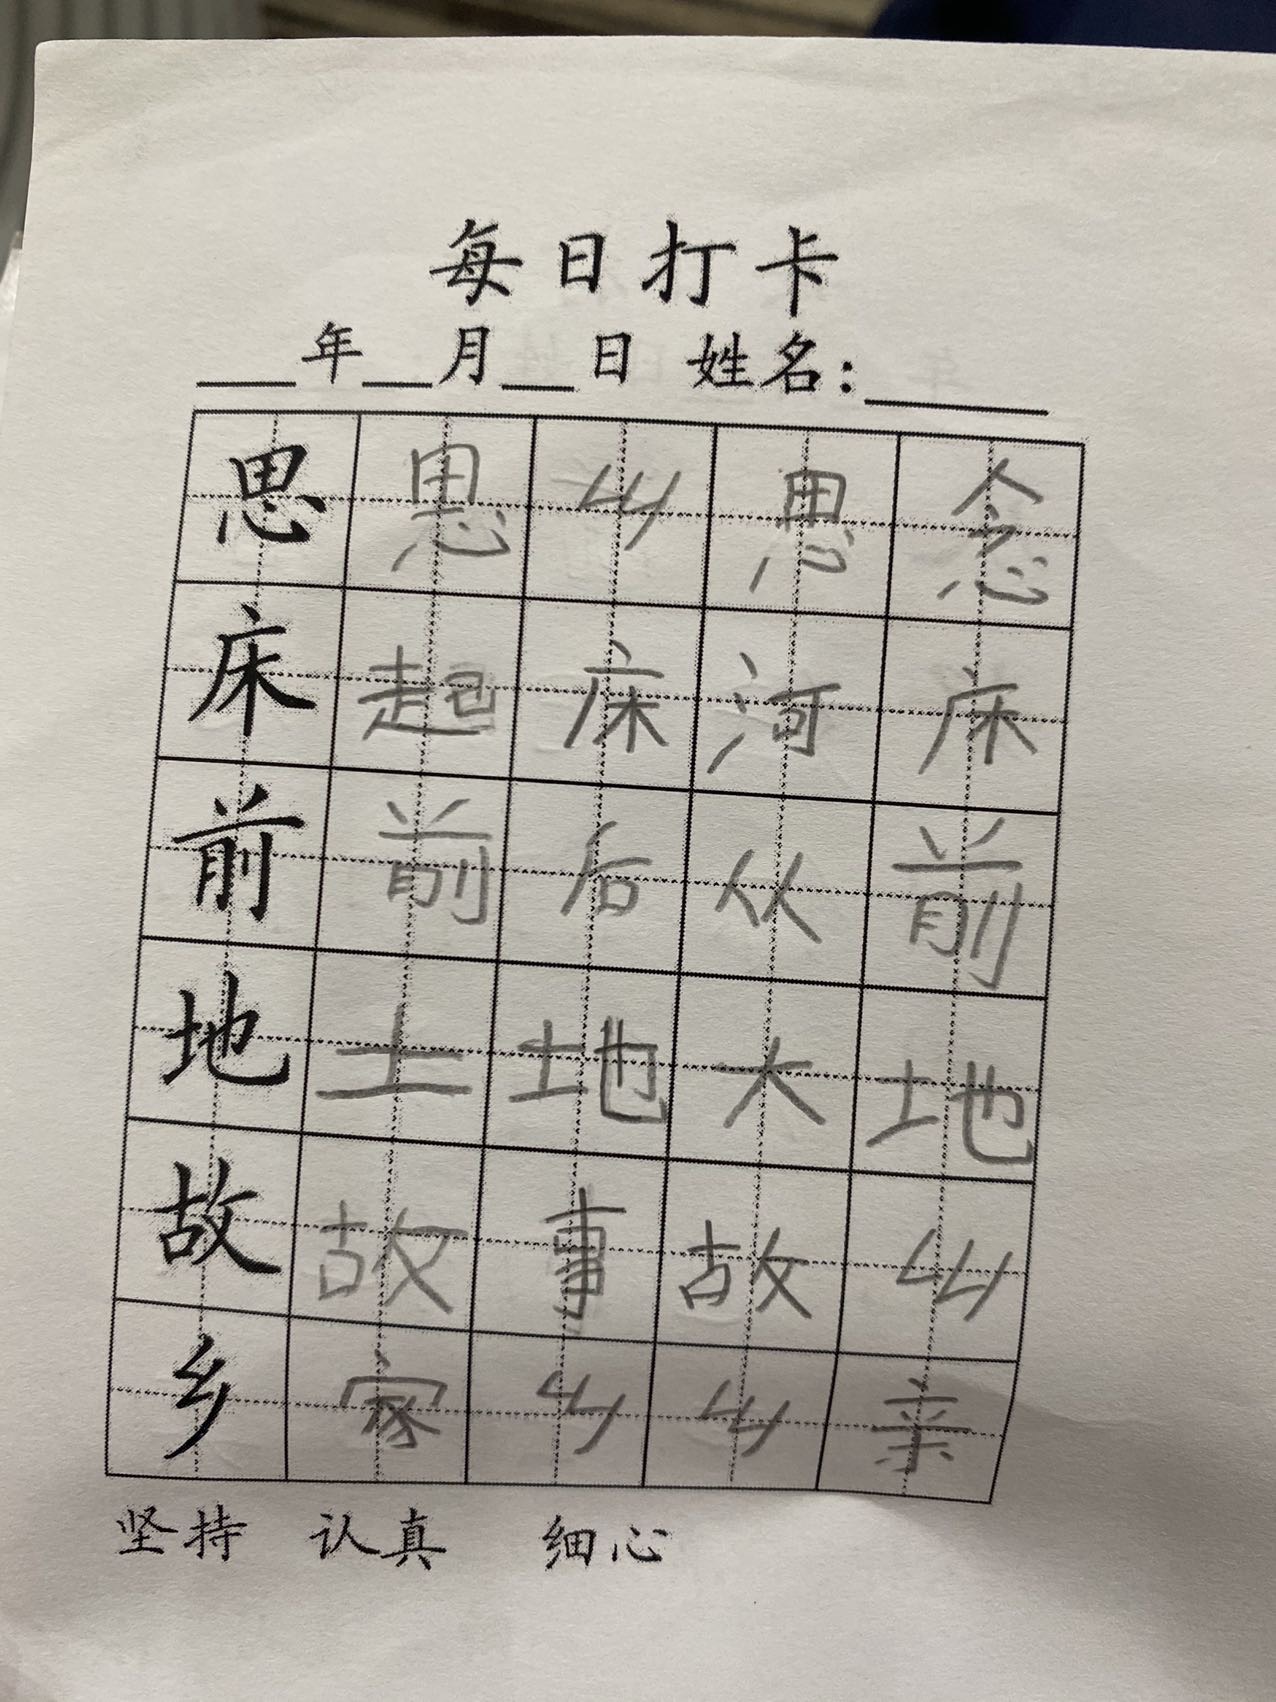 每日打卡
___年__月__日 姓名：_____
思 思 乡 思 念
床 起 床 河 床
前 前 后 从 前
地 土 地 大 地
故 故 事 故 乡
乡 家 乡 乡 亲
坚持 认真 细心